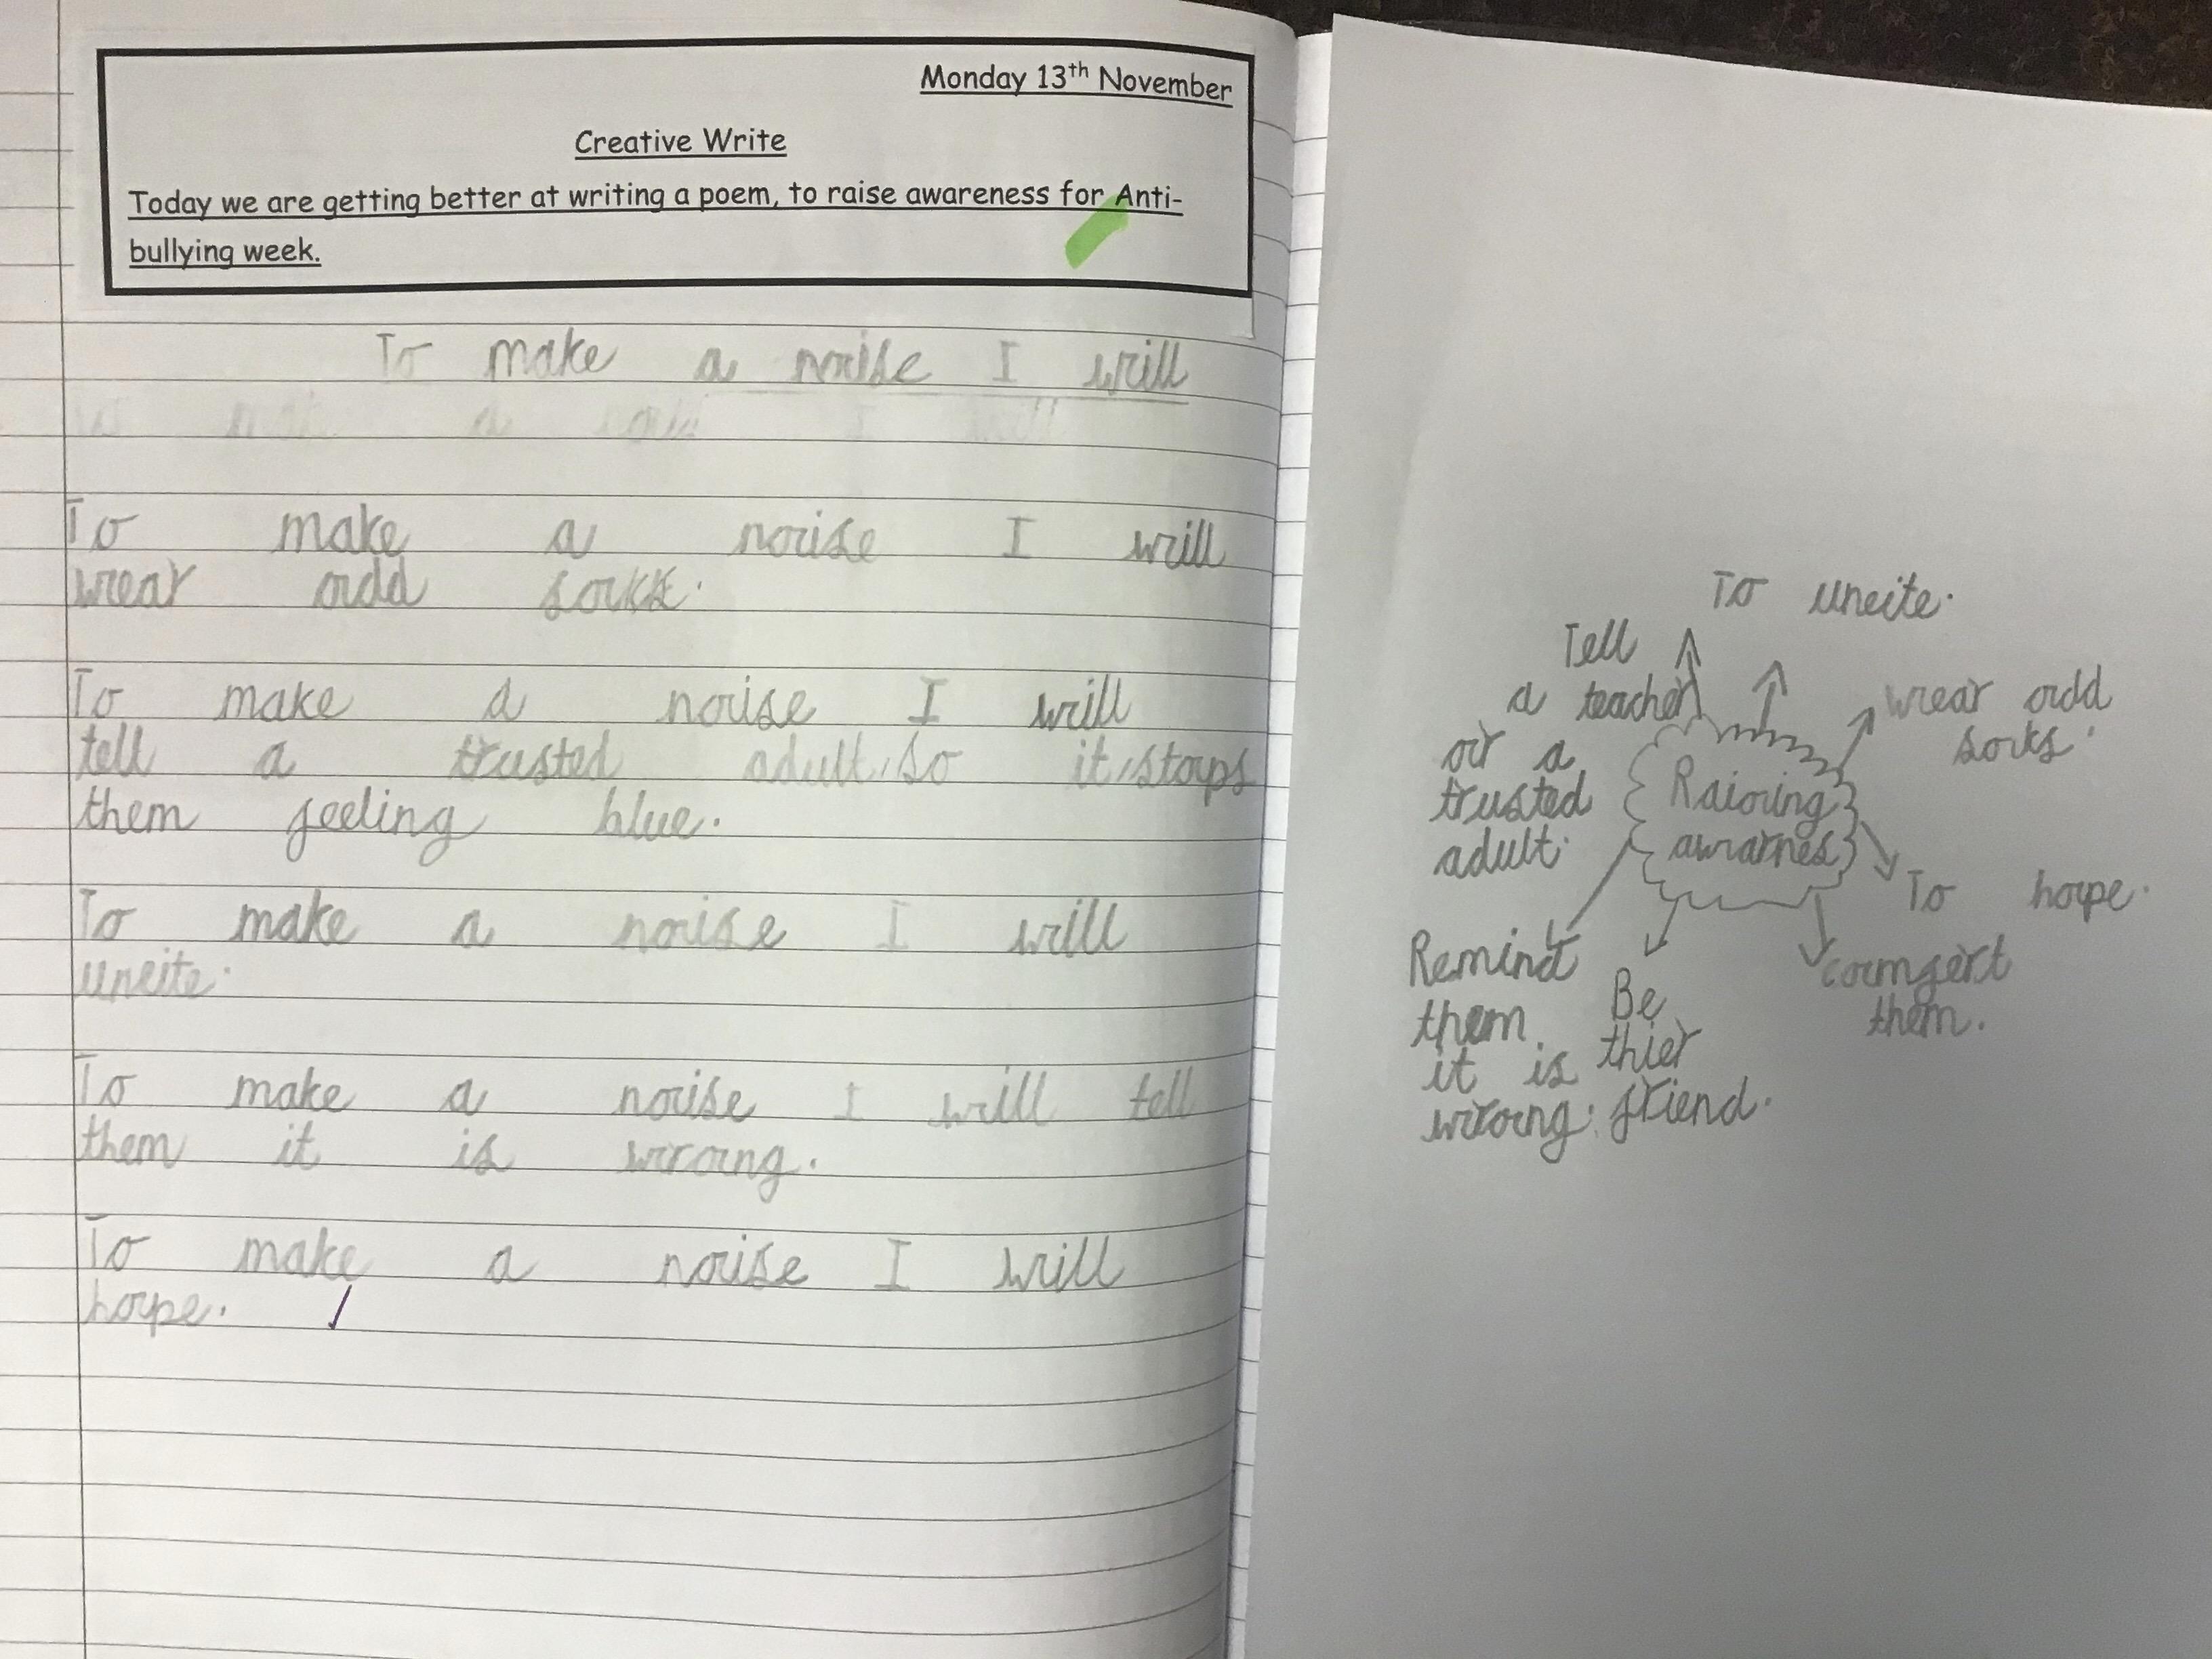 Monday 13th November
Creative Write
Today we are getting better at writing a poem, to raise awareness for Anti-
bullying week.
To make a noise I will
To make a noise I will
wear odd socks.
To make a noise I will
tell a trusted adult, so it, stops
them feeling blue.
To make a noise I will
uneite.
To make a noise I will tell
them it is wrong.
To make a noise I will
hope.
To uneite.
Tell
a teacher
or a
trusted
adult.
wear odd
socks.
Raioring
awarnes
To hope.
Remind
them
it is
wrong.
Be
thier
friend.
comfert
them.